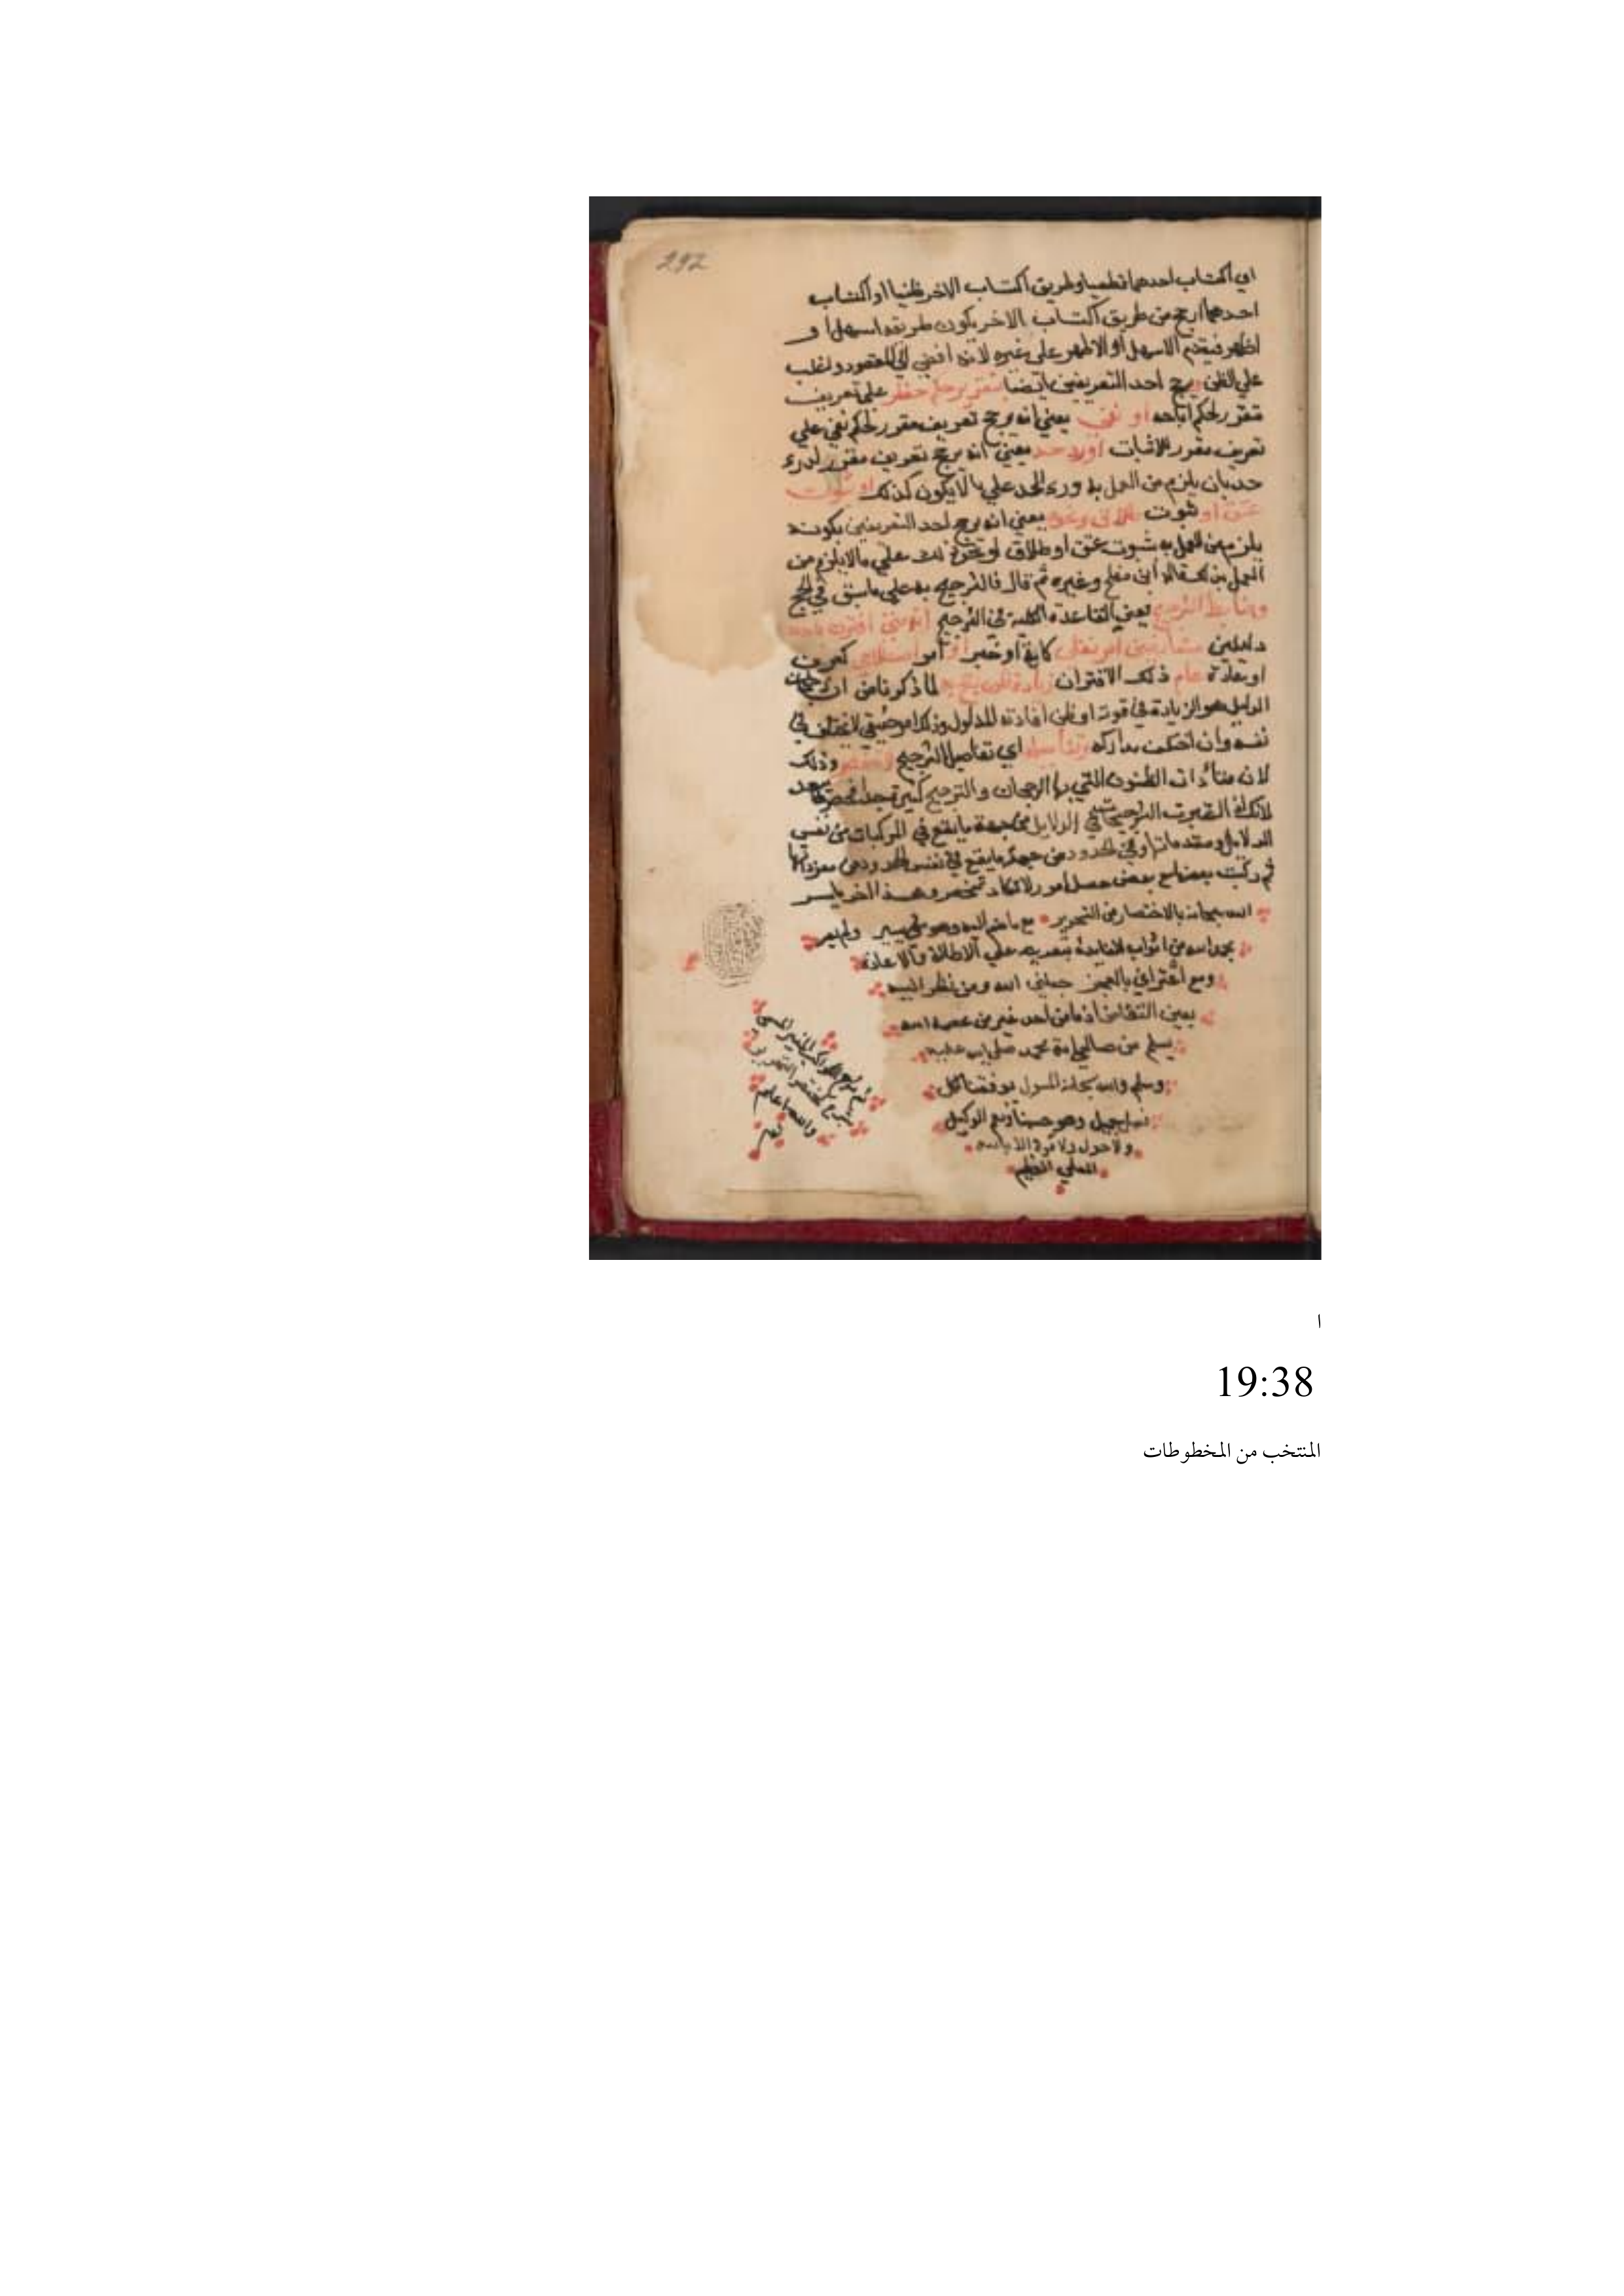 292
اي اكتساب احدهما قطعيا وطريق اكتساب الاخر ظنيا او اكتساب
احدهما ارجح من طريق اكتساب الاخر بكون طريقه اسهل او
اظهر فيقدم الاسهل او الاظهر على غيره لانه افضي الي المقصود واغلب
علي الظن ويرجح احد التعريفين ايضا بتقرير حكم حظر علي تعريف
مقرر لحكم اباحه او نفي يعني انه يرجح تعريف مقرر لحكم نفي علي
تعريف مقرر للاثبات او درء حد يعني انه يرجح تعريف مقرر لدرء
حد بان يلزم من العمل به درء الحد علي ما لا يكون كذلك او ثبوت
عتق او ثبوت طلاق ونحوه يعني انه يرجح احد التعريفين بكونه
يلزم من العمل به ثبوت عتق او طلاق او نحو ذلك علي ما لا يلزم من
العمل بذلك قاله ابن مفلح وغيره ثم قال فالترجيح به علي ما سبق في الحجج
وضابط الترجيح يعني القاعدة الكلية في الترجيح انه متي اقترن باحد
دليلين متعارضين امر نقلي كاية او خبر او امر اصطلاحي كعرف
او عادة عام ذلك الاقتران زيادة ظن رجح به لما ذكرنا من ان رجحان
الدليل هو الزيادة في قوته او ظن افادته المدلول وذلك امر حقيقي لا يختلف في
نفسه وان اختلفت مداركه وتفاصيله اي تفاصيل الترجيح لا تنحصر وذلك
لان مثارات الظنون التي بها الرجحان والترجيح كثيرة جدا فحصرها بعيد
لانك اذا اعتبرت الترجيحات في الدلايل من جهة ما يقع في المركبات من نفس
الدلايل ومقدماتها وفي الحدود من جهة ما يقع في نفس الحدود من مفرداتها
ثم ركبت بعضها مع بعض حصل امور لا تكاد تنحصر وهذا اخر ما يسر
الله سبحانه بالاختصار من التحرير مع ما ضم اليه وهو شي يسير ولم يعر
بحمد الله من اثواب الفايدة بتعريه عن الاطالة والاعادة
ومع اعترافي بالعجز جعلني الله ومن نظر اليه
بعين التغاضي اذ ما من احد غير من عصمه الله
يسلم من صالحي امة محمد صلي الله عليه
وسلم والله سبحانه المسول يوفقنا لكل
فعل جميل وهو حسبنا ونعم الوكيل
ولا حول ولا قوة الا بالله
العلي العظيم
والله اعلم
تم
ا
19:38
المنتخب من المخطوطات